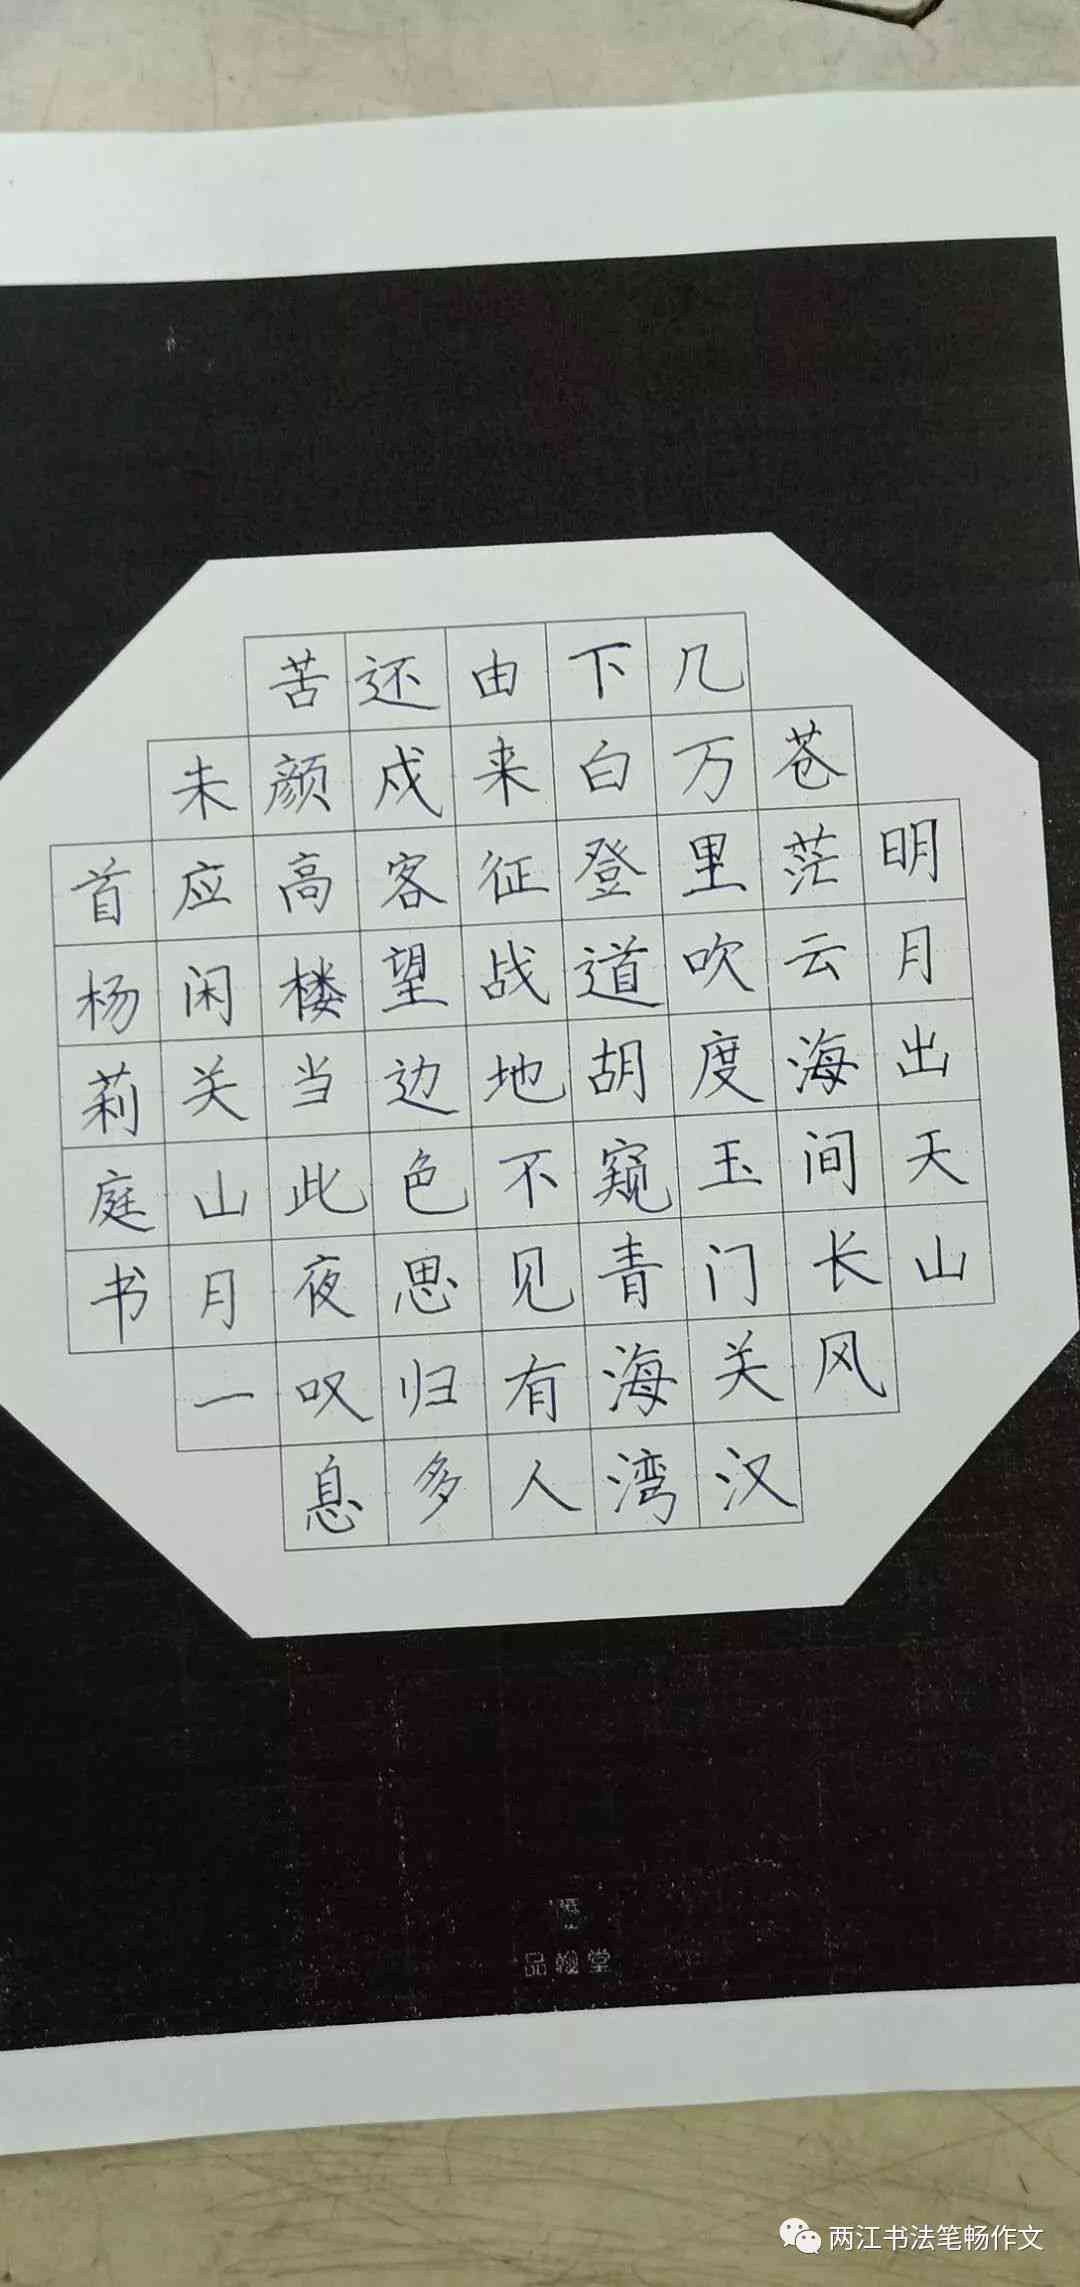 明月出天山
苍茫云海间长风
几万里吹度玉门关汉
下白登道胡窥青海湾
由来征战地不见有人
还戍客望边色思归多
苦颜高楼当此夜叹息
未应闲关山月一
首杨莉庭书
品翰堂
两江书法笔畅作文